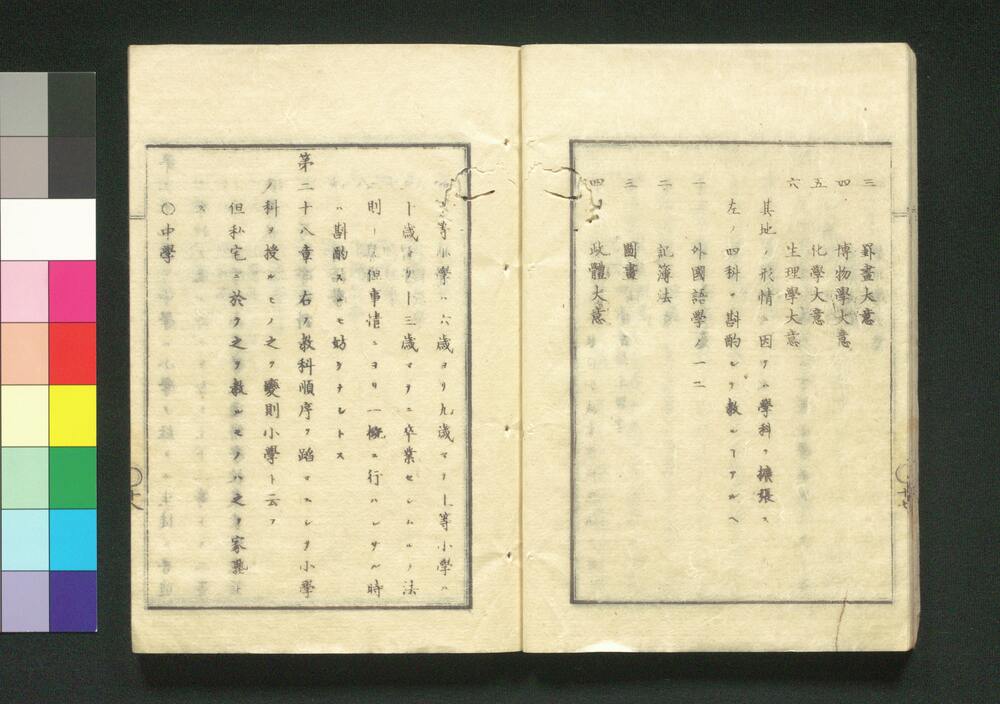 三 罫畫大意
四 博物學大意
五 化學大意
六 生理學大意
其地ノ形情ニ因テハ學科ヲ擴張スル
左ノ四科ヲ斟酌シテ教ルヿアルヘシ
一 外國語學ノ一二
二 記簿法
三 圖畫
四 政體大意
下等小學ハ六歳ヨリ九歳マテ上等小學ハ
十歳ヨリ十三歳マテニ卒業セシムルヲ法
則トス但事情ニヨリ一概ニ行ハレサル時
ハ斟酌スルモ妨ケナシトス
第二十八章 右ノ教科順序ヲ踏マスシテ小學
ノ科ヲ授ルモノ之ヲ變則小學ト云フ
但私宅ニ於テ之ヲ教ルモノハ之ヲ家塾トス
〇中學
十七
十八